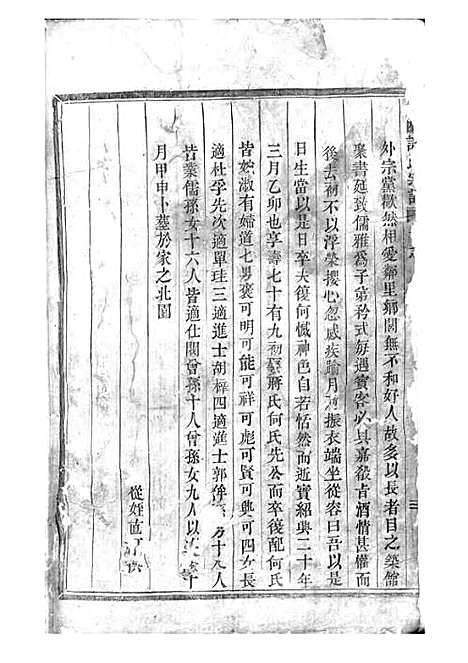 外宗黨歡然相愛鄰里鄉閭無不和好人故多以長者目之築館
聚書延致儒雅為子弟矜式每遇賓客必具嘉殽旨酒情甚懽而
後去初不以浮榮攖心忽感疾踰月振衣端坐從容曰吾以是
日生當以是日卒夫復何憾神色自若恬然而逝實紹興二十年
三月乙卯也享壽七十有九初娶蔣氏何氏先公而卒後配何氏
皆婉淑有婦道七男褒可明可能可祥可彪可賢可興可四女長
適杜孚先次適單珪三適進士胡梓四適進士郭孫男十八人
皆業儒孫女十六人皆適仕閥曾孫十人曾孫女九人以十
月甲申卜墓於家之北園
從姪直